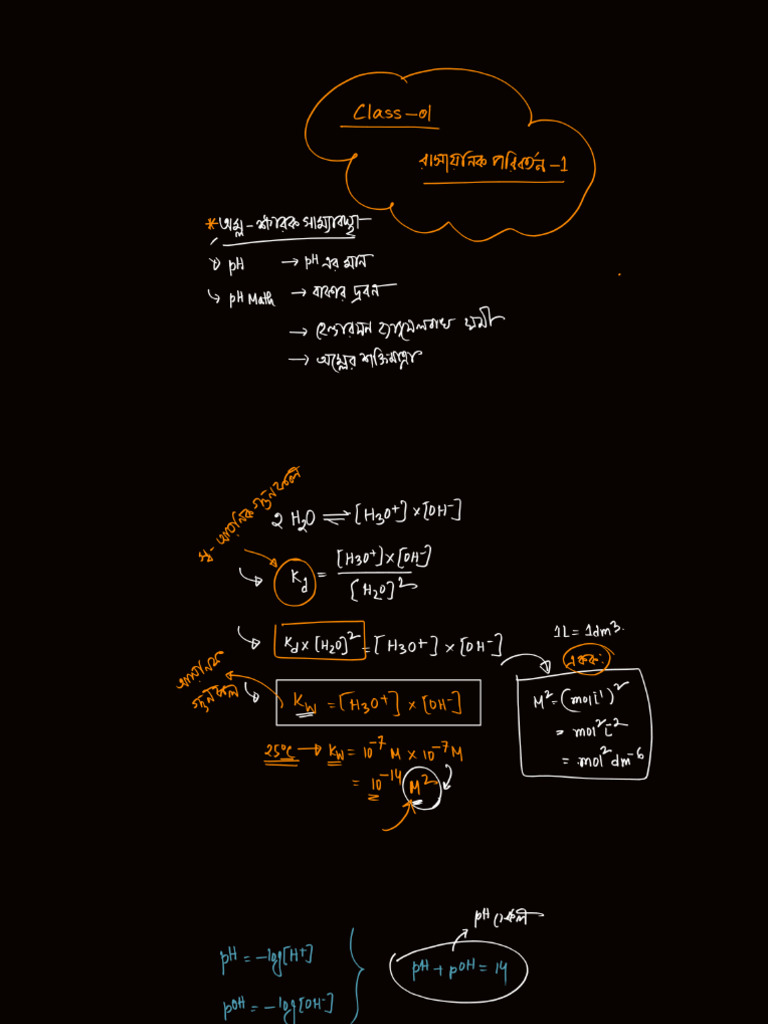 Class-01
রাসায়নিক পরিবর্তন-1
*অম্ল-ক্ষারক সাম্যাবস্থা
pH → pH এর মান
pH Math → বাফার দ্রবন
→ হেন্ডারসন হ্যাসেলবাখ
→ অম্লের শক্তিমাত্রা
2 H₂O ⇌ [H₃O⁺] × [OH⁻]
Kd = [H₃O⁺] × [OH⁻] / [H₂O]²
Kd × [H₂O]² = [H₃O⁺] × [OH⁻]
আয়নিক
গুনফল
Kw = [H₃O⁺] × [OH⁻]
25°C → Kw = 10⁻⁷ M × 10⁻⁷ M
= 10⁻¹⁴ M²
1L = 1dm³.
একক:
M² = (molL⁻¹)²
= mol²L⁻²
= mol² dm⁻⁶
pH স্কেল
pH = -log[H⁺]
pOH = -log[OH⁻]
pH + pOH = 14